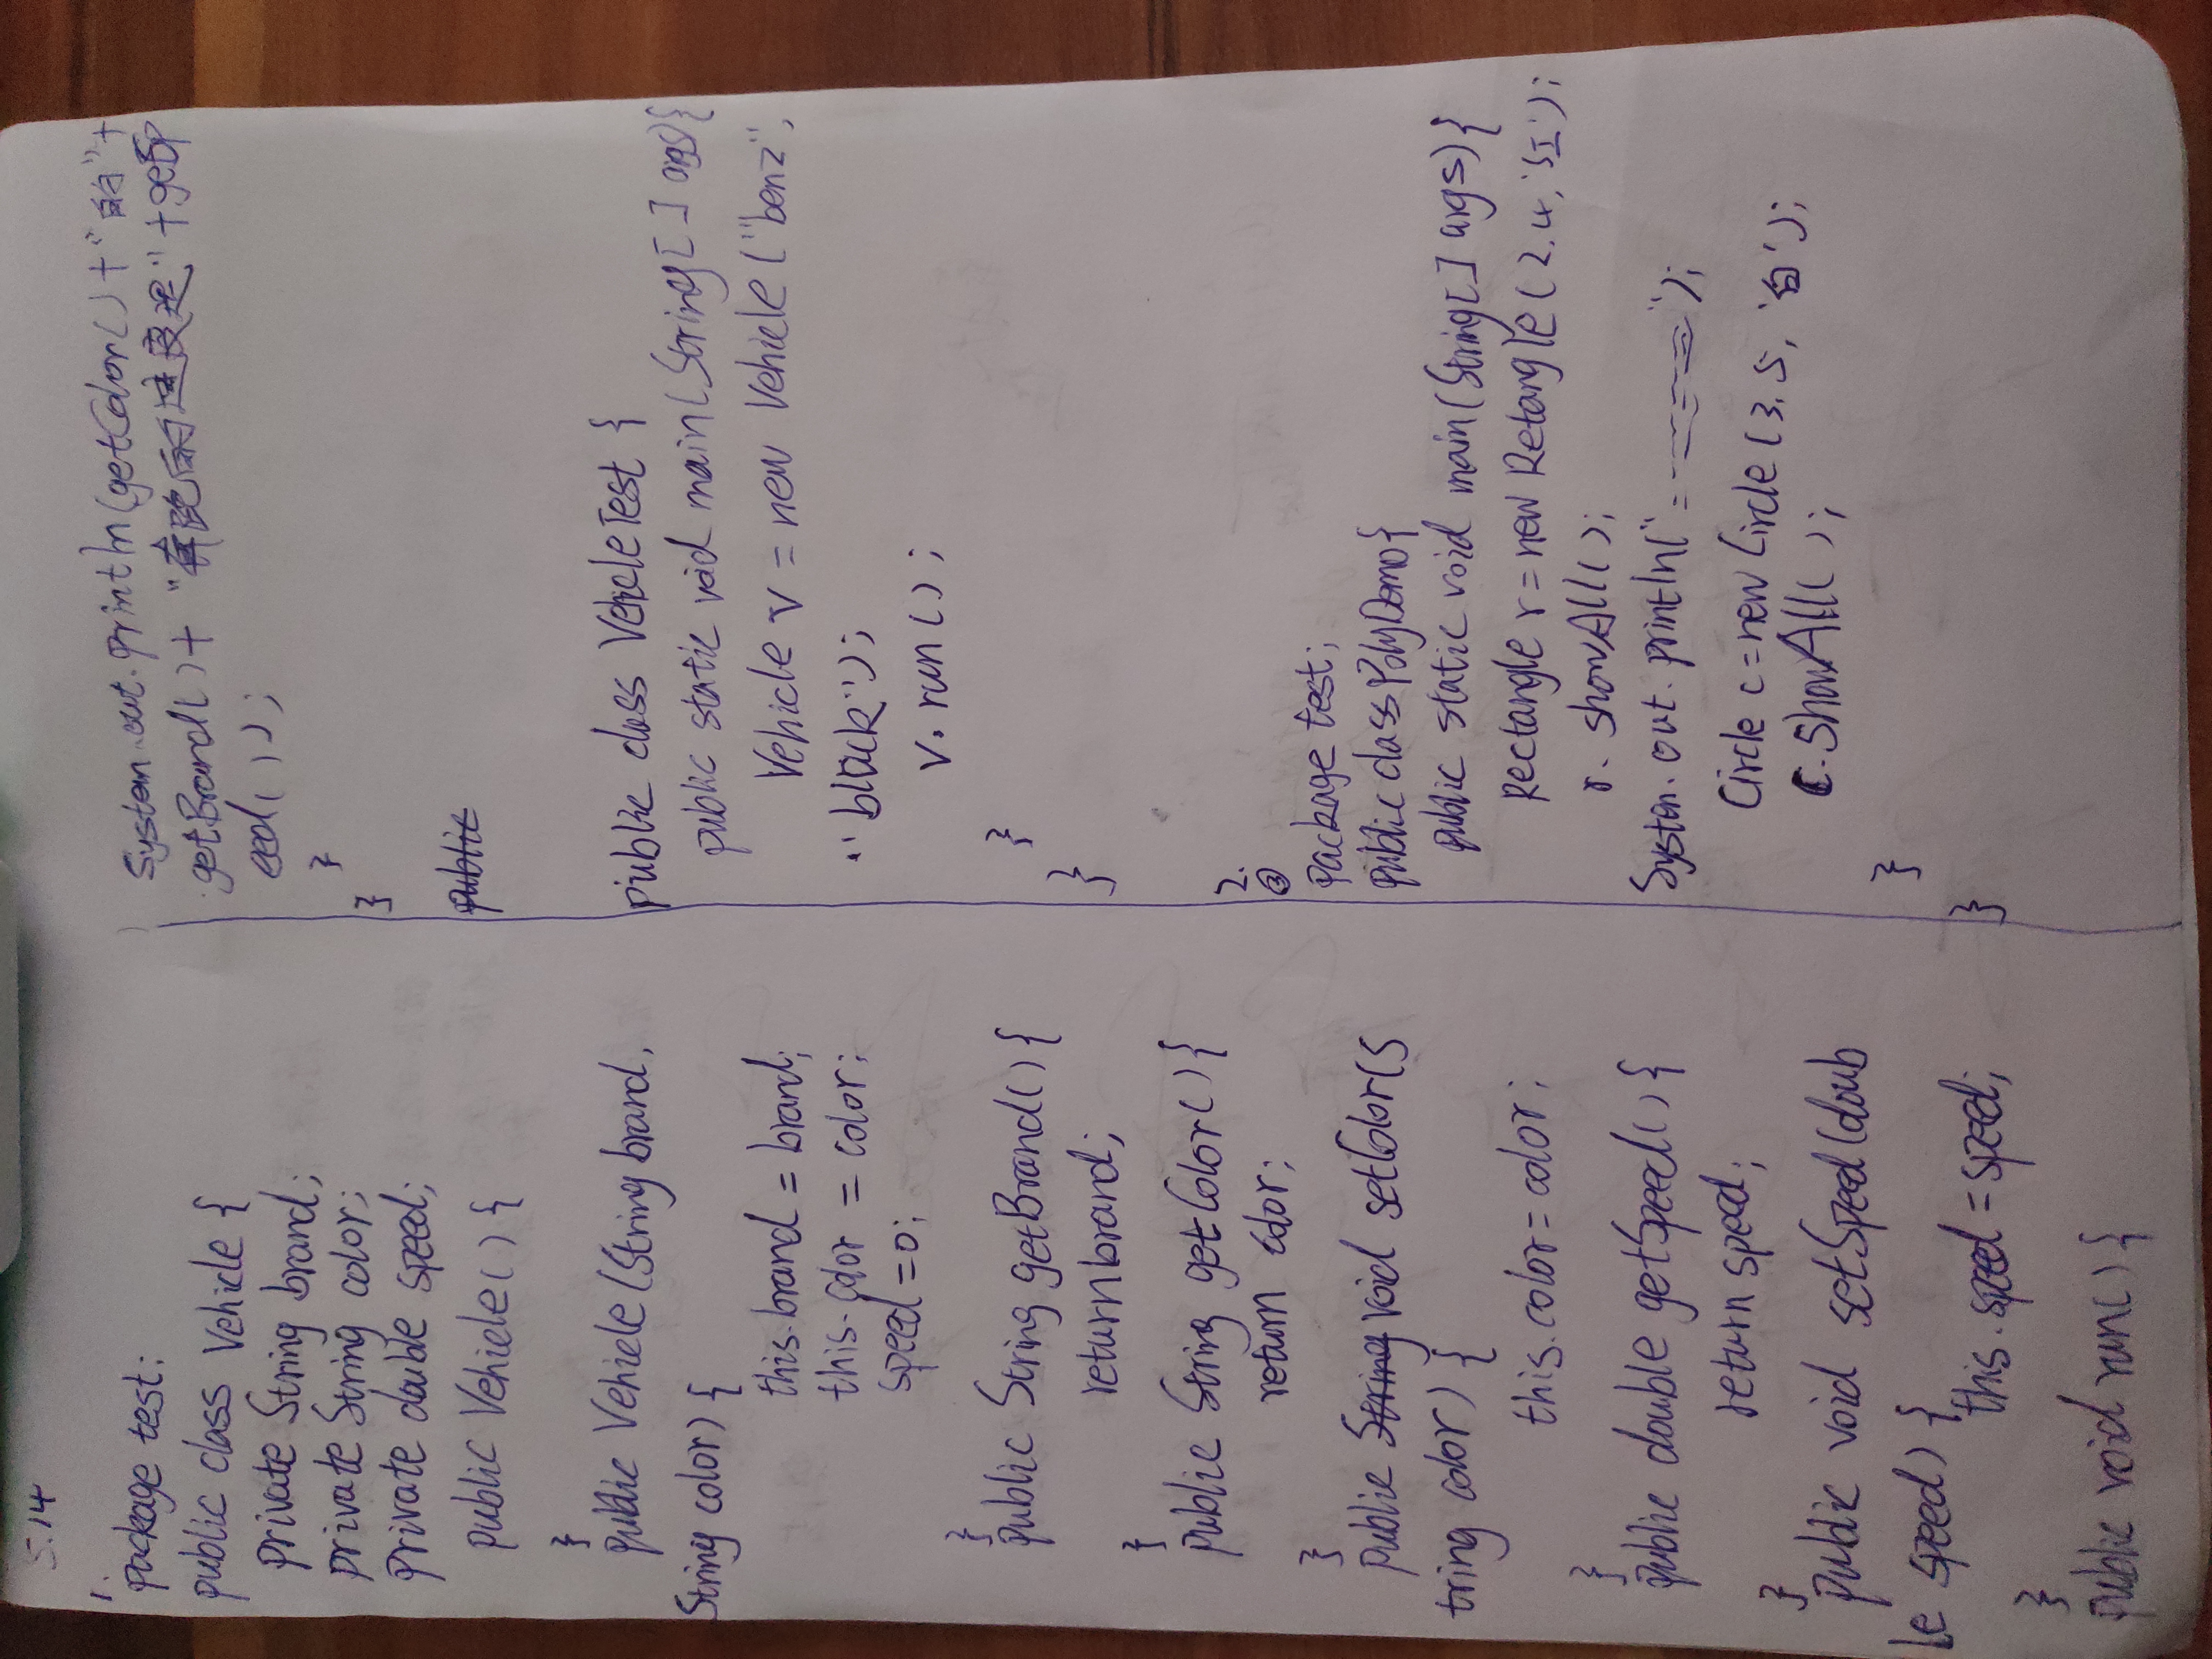 5.14
1.
package test;
public class Vehicle {
private String brand;
private String color;
private double speed;
public Vehicle() {
}
public Vehicle(String brand,
String color) {
this.brand = brand;
this.color = color;
speed = 0;
}
public String getBrand() {
return brand;
}
public String getColor() {
return color;
}
public String void setColor(S
tring color) {
this.color = color;
}
public double getSpeed() {
return speed;
}
public void setSpeed(doub
le speed) {
this.speed = speed;
}
public void run() {
System.out.println(getColor() + "的" +
getBrand() + "奔驰的速度是" + getSp
eed());
}
}
public
public class VehicleTest {
public static void main(String[] args) {
Vehicle v = new Vehicle("benz",
"black");
v.run();
}
}
2.
③
package test;
public class PolyDemo {
public static void main(String[] args) {
Rectangle r = new Retangle(2.4, '红');
r.showAll();
System.out.println("=======");
Circle c = new Circle(3.5, '白');
c.showAll();
}
}